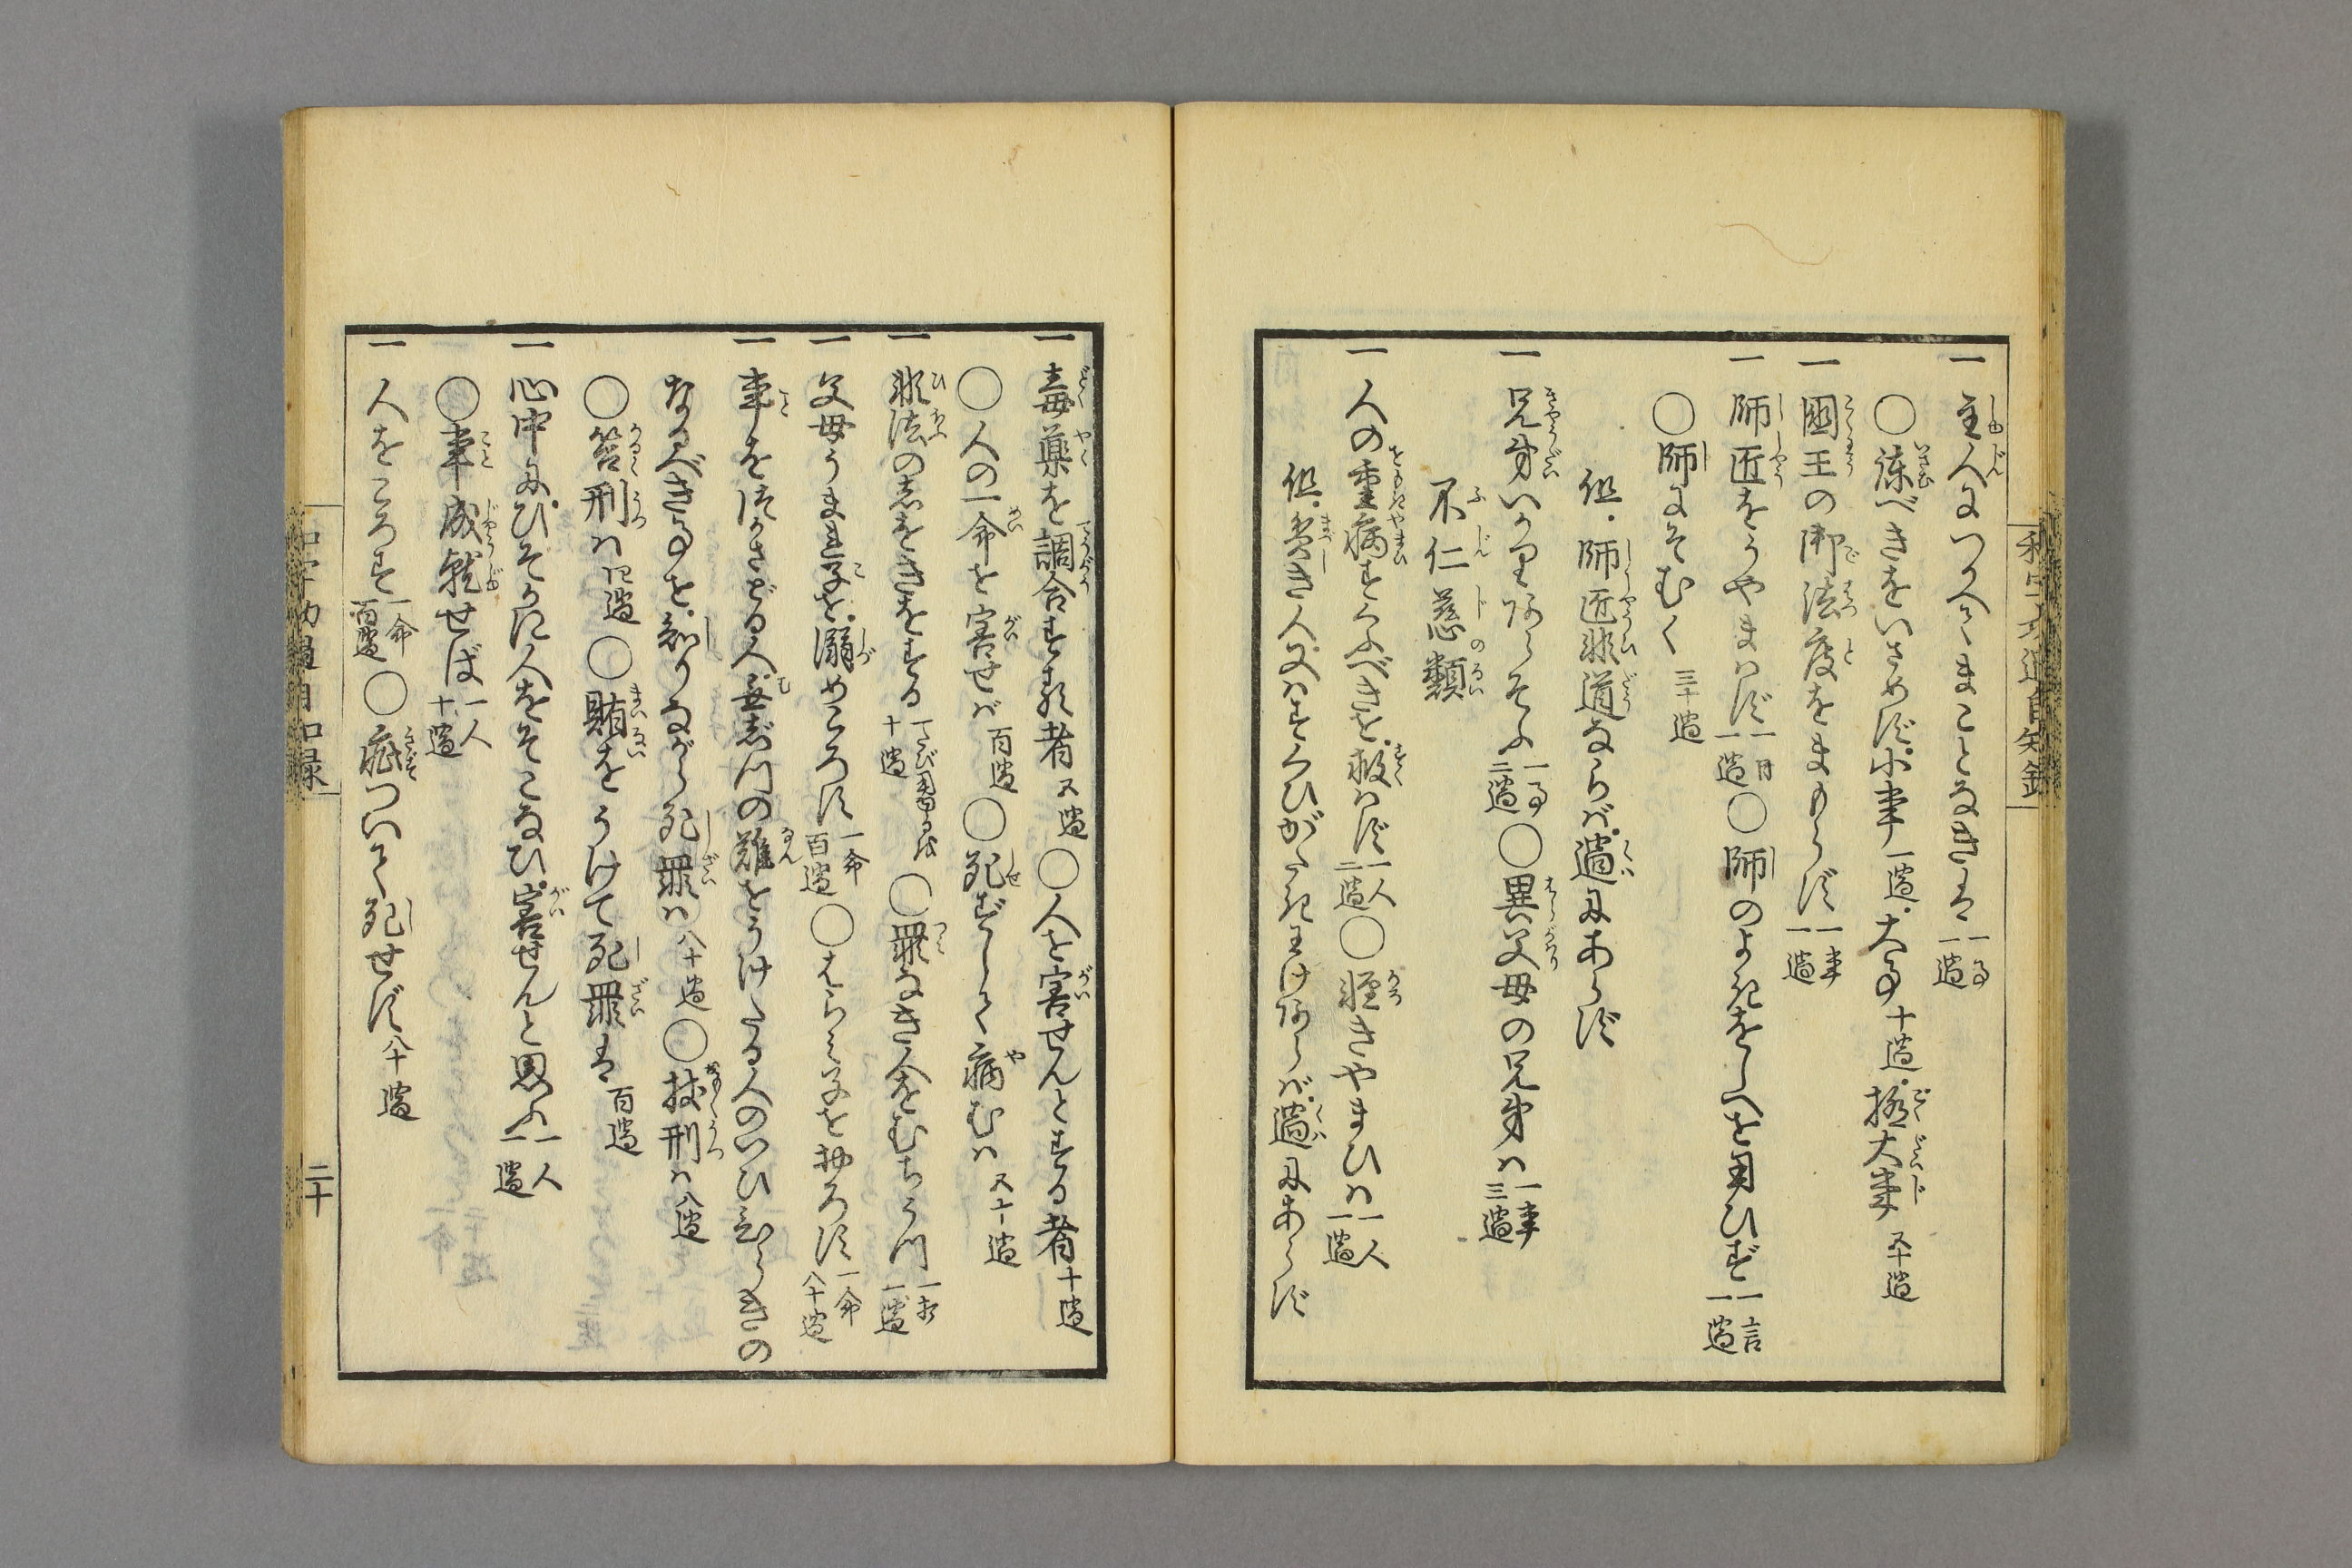 一 主人につかへてまことなきは 一事一過
○諫べきをいさめず小事 一過 大事 十過 極大事 五十過
一 國王の御法度をまもらず 一事一過
一 師匠をうやまはず 一日一過 ○師のよきをしへを用ひず 一言一過
○師にそむく 三十過
但師匠非道ならば過にあらず
一 兄弟いかりあらそふ 一事二過 ○異父母の兄弟は 一事三過
不仁慈類
一 人の重病すくふべきを救はず 一人二過 ○軽きやまひは 一人一過
但貧き人又はすくひがたきわけあらば過にあらず
和字功過自知録
一 毒薬を調合する者 五過 ○人を害せんとする者 十過
○人の一命を害せば 百過 ○死ずして病むは 五十過
一 非法のしおきをする 十過 ○罪なき人をむちうつ 一過
一 父母うまれ子を溺めころす 一命百過 ○はらみ子をおろす 一命八十過
一 事をつかさどる人無実の難をうけたる人のいひひらきの
なるべき事を知りながら死罪は 八十過 ○杖刑は 八過
○笞刑は 四過 ○賄をうけて死罪は 百過
一 心中にひそかに人をそこなひ害せんと思ふ 一人一過
○事成就せば 一人十過
一 人をころす 一命百過 ○疵ついて死せず 八十過
和字功過自知録 二十